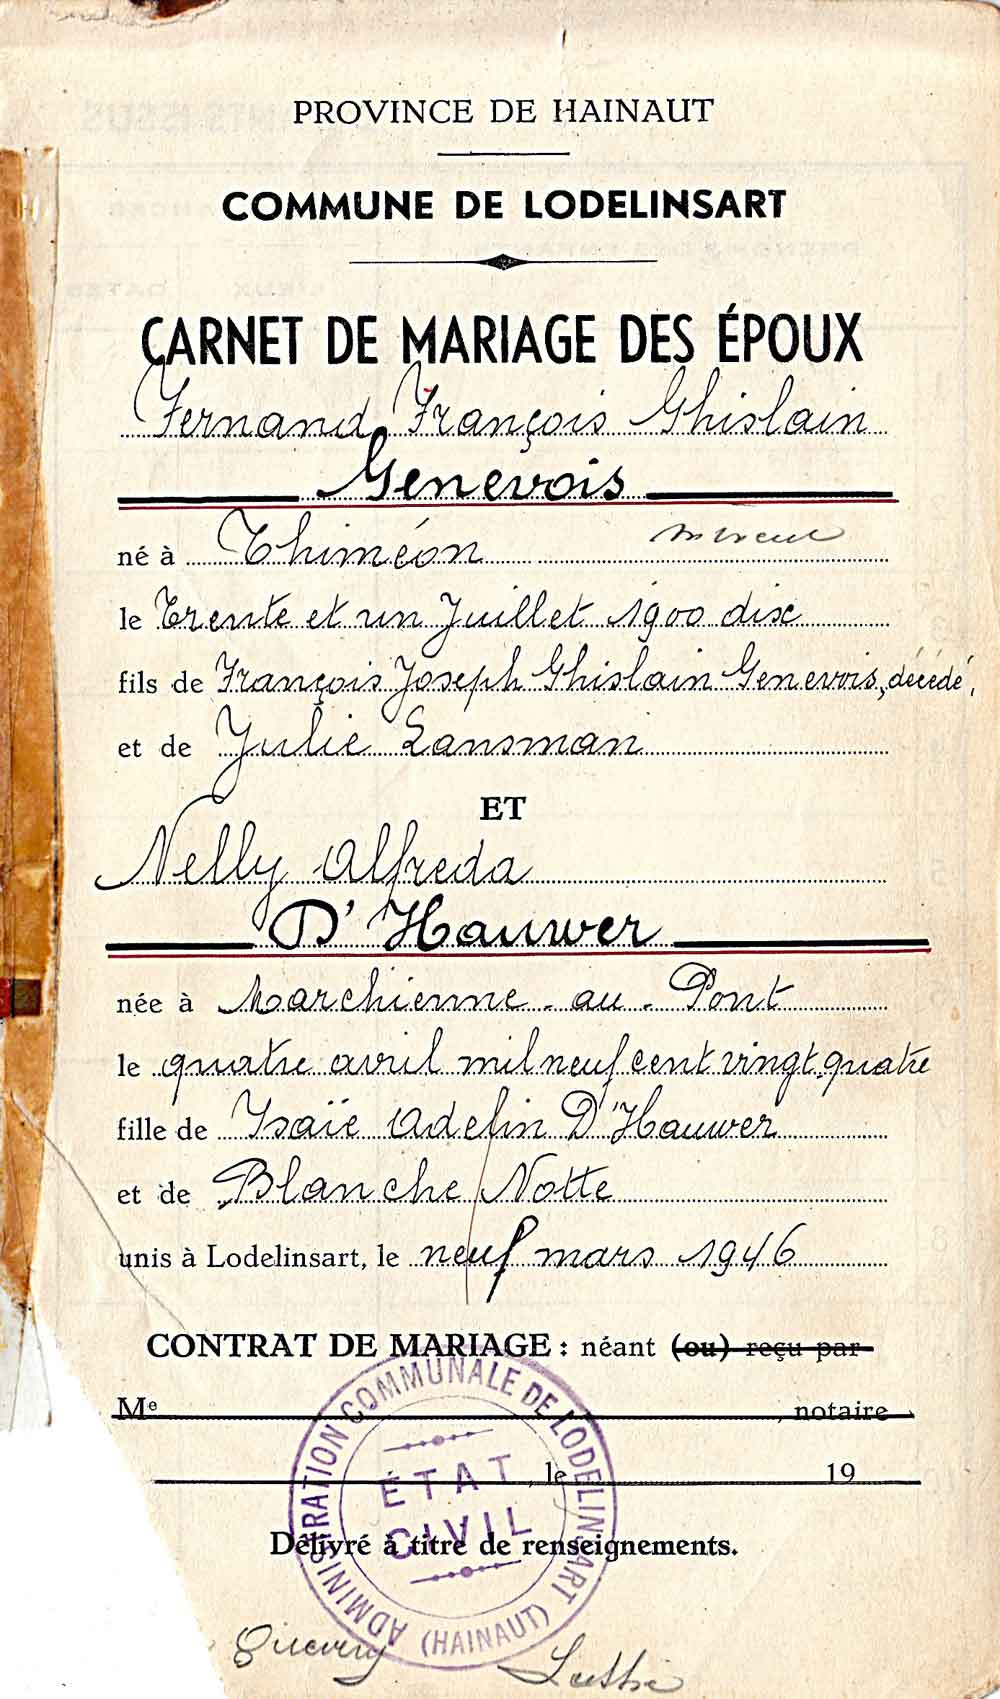 PROVINCE DE HAINAUT
COMMUNE DE LODELINSART
CARNET DE MARIAGE DES ÉPOUX
Fernand François Ghislain
Genevois
né à Thiméon
le Trente et un Juillet 1900 dix
fils de François Joseph Ghislain Genevois, décédé,
et de Julie Lansman
ET
Nelly Alfreda
D'Hauwer
née à Marchienne-au-Pont
le quatre avril mil neuf cent vingt-quatre
fille de Isaïe Adelin D'Hauwer
et de Blanche Notte
unis à Lodelinsart, le neuf mars 1946
CONTRAT DE MARIAGE : néant (ou) reçu par
Me , notaire
, le 19
Délivré à titre de renseignements.
ADMINISTRATION COMMUNALE DE LODELINSART
(HAINAUT)
ÉTAT
CIVIL